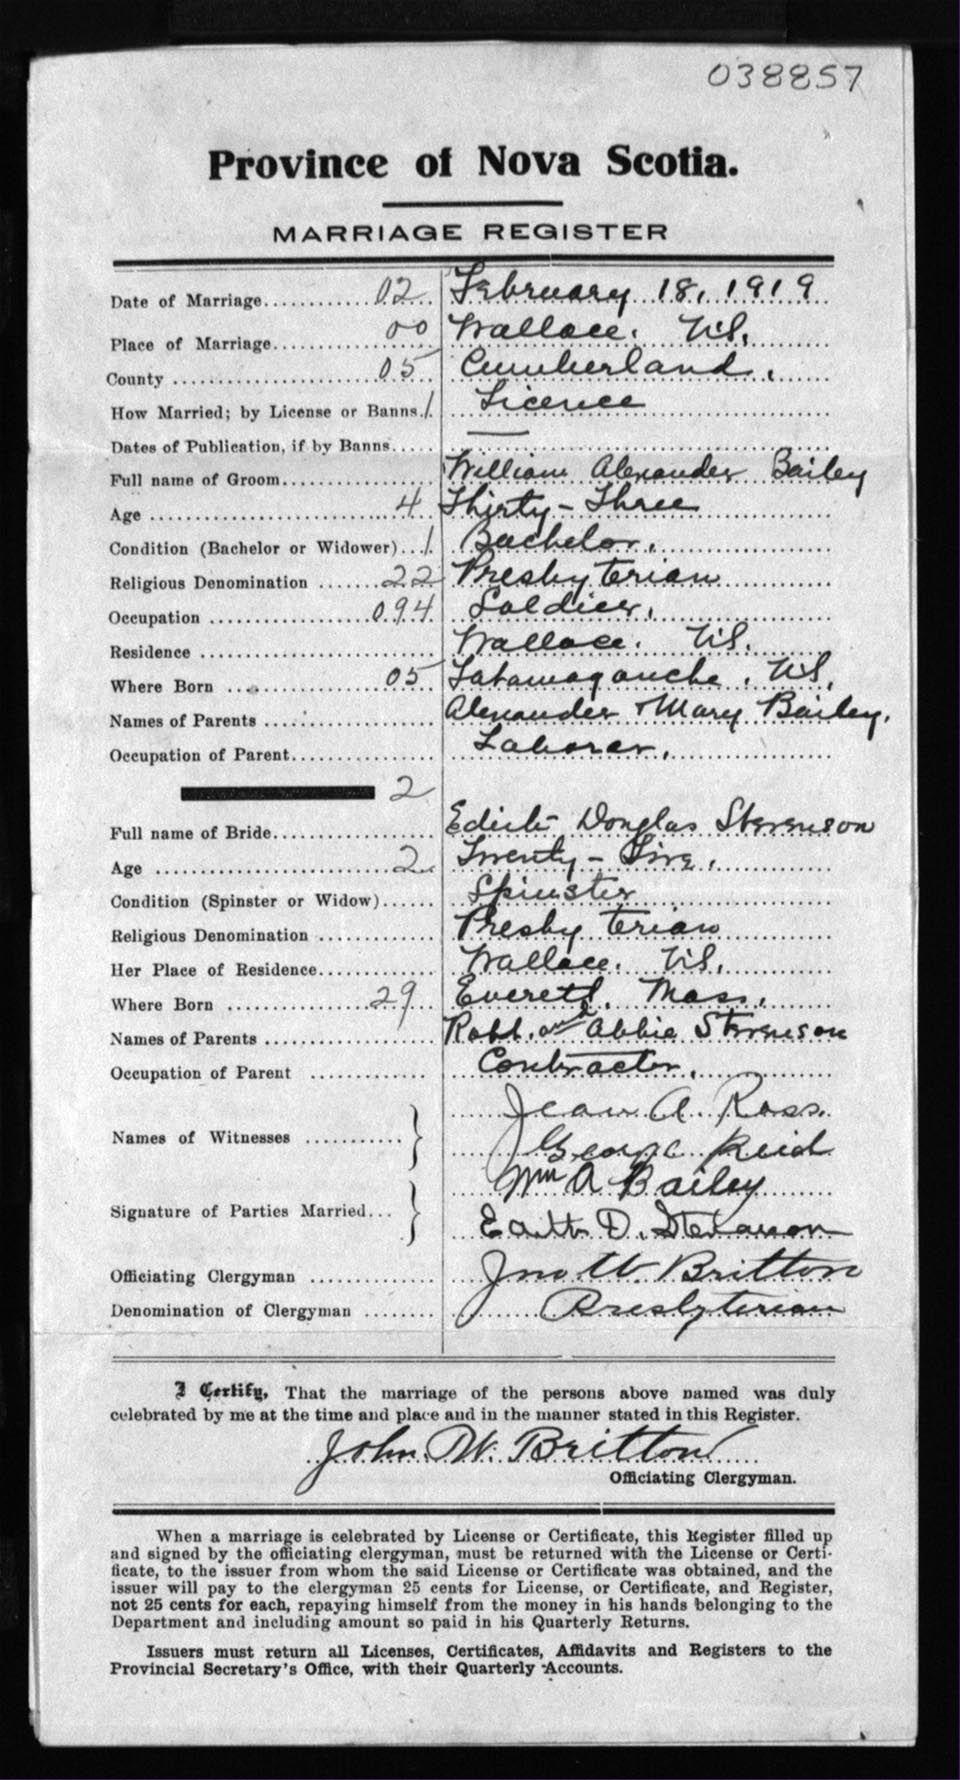 038857
Province of Nova Scotia.
MARRIAGE REGISTER
Date of Marriage............02.. February 18, 1919
Place of Marriage............00 Wallace. N.S.
County ....................05.. Cumberland.
How Married; by License or Banns.1. Licence
Dates of Publication, if by Banns..... —
Full name of Groom............... William Alexander Bailey
Age ........................4.. Thirty-Three
Condition (Bachelor or Widower)...1. Bachelor.
Religious Denomination ......22 Presbyterian
Occupation ................094 Soldier.
Residence ....................... Wallace. N.S.
Where Born ................05 Tatamagouche. N.S.
Names of Parents ................ Alexander & Mary Bailey.
Occupation of Parent............... Laborer.
2
Full name of Bride............... Edith Douglas Stevenson
Age ........................2.. Twenty-Five.
Condition (Spinster or Widow)...... Spinster
Religious Denomination ........... Presbyterian
Her Place of Residence............ Wallace. N.S.
Where Born ..............29.. Everett. Mass.
Names of Parents ................ Robt. and Abbie Stevenson
Occupation of Parent ............ Contractor.
Names of Witnesses .......... } Jean A. Ross.
George Reid
Signature of Parties Married... } Wm A Bailey
Edith D. Stevenson
Officiating Clergyman ............ Jno W. Britton
Denomination of Clergyman ........ Presbyterian
I Certify, That the marriage of the persons above named was duly
celebrated by me at the time and place and in the manner stated in this Register.
John W. Britton
Officiating Clergyman.
When a marriage is celebrated by License or Certificate, this Register filled up
and signed by the officiating clergyman, must be returned with the License or Certi-
ficate, to the issuer from whom the said License or Certificate was obtained, and the
issuer will pay to the clergyman 25 cents for License, or Certificate, and Register,
not 25 cents for each, repaying himself from the money in his hands belonging to the
Department and including amount so paid in his Quarterly Returns.
Issuers must return all Licenses, Certificates, Affidavits and Registers to the
Provincial Secretary's Office, with their Quarterly Accounts.